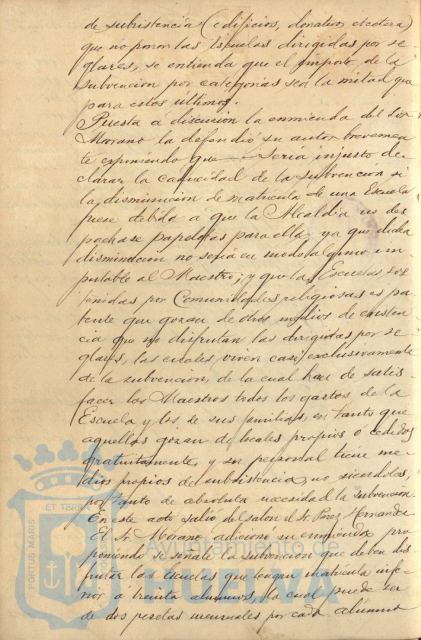 de subsistencia (edificios, donativos, etcetera)
que no poseen las Escuelas dirigidas por se
glares, se entienda que el importe de la
subvencion por categorías sea la mitad que
para estos últimos.
Puesta a discusion la enmienda del Sor
Morano la defendió su autor brevemen
te exponiendo que sería injusto de
clarar la caducidad de la subvencion si
la disminucion de matrícula de una Escuela
fuese debida a que la Alcaldia no des
pachase papeletas para ella ya que dicha
disminucion no seria en modo alguno im
putable al Maestro; y que las Escuelas sos
tenidas por Comunidades religiosas es pa
tente que gozan de otros medios de existen
cia que no disfrutan las dirigidas por se
glares, las cuales viven casi exclusivamente
de la subvencion, de la cual han de satis
facer los Maestros todos los gastos de la
Escuela y los de sus familias, en tanto que
aquellos gozan de locales propios o cedidos
gratuitamente, y su personal tiene me
dios propios de subsistencia, no siendoles,
por tanto de absoluta necesidad la subvencion.
En este acto salió del salon el Sr. Perez Hernandez
El Sr. Morano adicionó su enmienda pro
poniendo se señale la subvencion que deben dis
frutar las escuelas que tengan matrícula infe
rior a treinta alumnos, la cual puede ser
de dos pesetas mensuales por cada alumno
PORTUS MARIS
ET TERRÆ
Ayuntamiento de
HUELVA